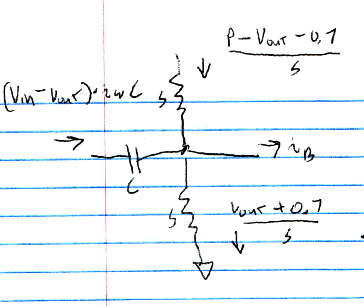 P - Vout - 0.7
S
(Vin - Vout) · iωC
S
iB
C
S
Vout + 0.7
S